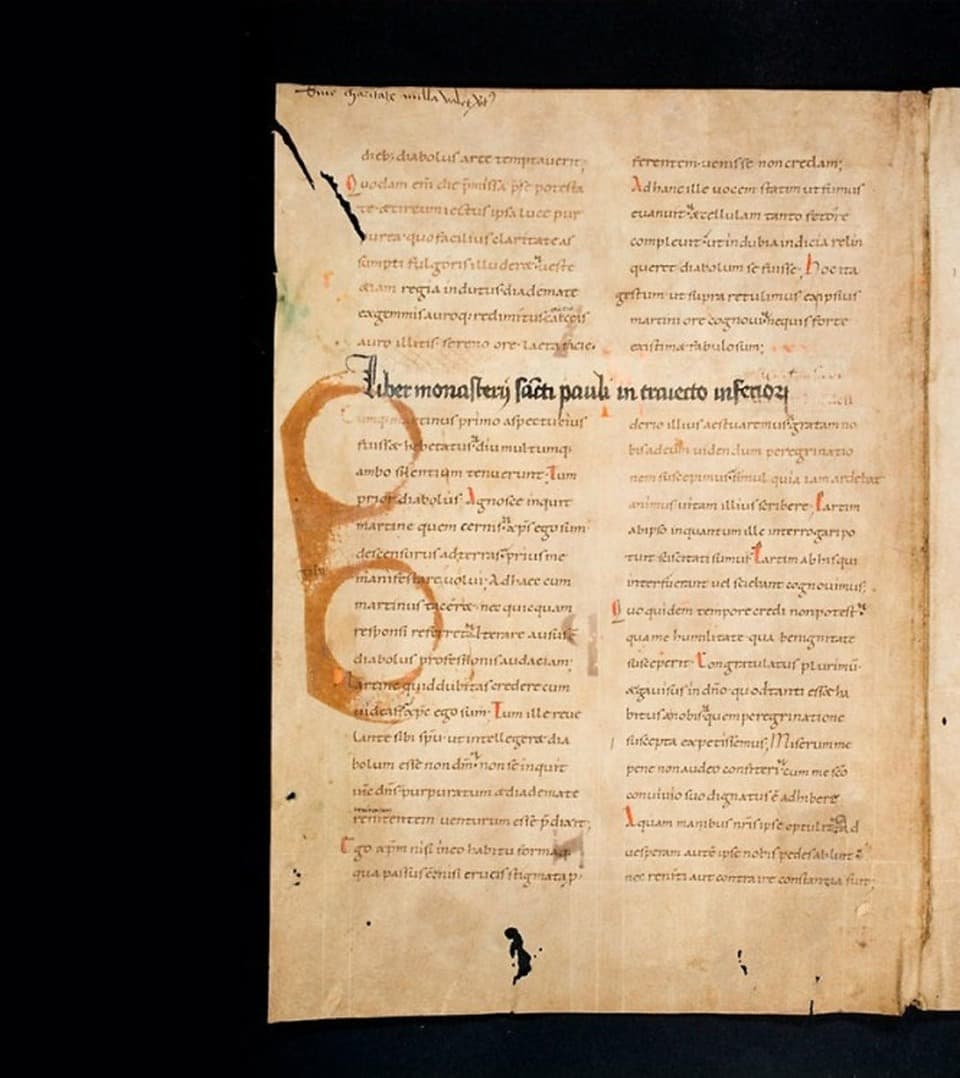 Sine charitate nulla valet
dieb; diabolus arte temptauerit;
Quodam eni die p̄missa p̄se potesta
te & circumiectus ipsa luce pur
purea quo facilius claritate as
sumpti fulgoris illuderet ueste
etiam regia indutus diademate
ex gemmis auroq; redimitus calceis
auro illitis sereno ore laeta facie
Liber monasterij sācti pauli in traiecto inferiori
martinus primo aspectu eius
fuisset hebetatus diu multumq;
ambo silentium tenuerunt. Tum
prior diabolus. Agnosce inquit
martine quem cernis xp̄s ego sum
descensurus ad terras prius me
manifestare uolui. Ad haec cum
martinus taceret nec quicquam
responsi referret iterare ausus ē
diabolus professionis audaciam;
Martine quid dubitas credere cum
uideas xp̄c ego sum. Tum ille reue
lante sibi sp̄u ut intellegeret dia
bolum esse non dm̄ non se inquit
ih̄c dn̄s purpuratum & diademate
renitentem uenturum esse p̄dixit;
Ego xp̄m nisi in eo habitu formaq;
qua passus ē nisi crucis stigmata p
ferentem uenisse non credam;
Ad hanc ille uocem statim ut fumus
euanuit & cellulam tanto fetore
compleuit ut indubia indicia relin
queret diabolum se fuisse; Hoc ita
gestum ut supra retulimus ex ipsius
martini ore cognoui ne quis forte
existimet fabulosum;
derio illius aestuaremus gratam no
bis ad eum uidendum peregrinatio
nem suscepimus simul quia iam ardebat
animus uitam illius scribere. Partim
ab ipso in quantum ille interrogari po
tuit sciscitati sumus. Partim ab his qui
interfuerant uel sciebant cognouimus;
Quo quidem tempore credi non potest
qua me humilitate qua benignitate
susceperit. Congratulatus plurimū
& gauisus in dn̄o quod tanti esset ha
bitus a nobis quem peregrinatione
suscepta expetissemus; Miserum me
pene non audeo confiteri cum me sc̄o
conuiuio suo dignatus ē adhibere
Aquam manibus nr̄is ipse optulit & ad
uesperam autē ipse nobis pedes abluit
nec reniti aut contraire constantia fuit